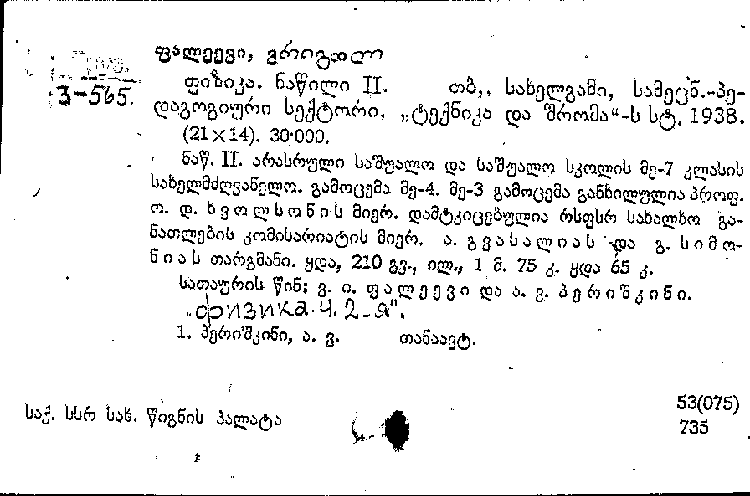 ფალეევი, გრიგოლ
3-565.
ფიზიკა. ნაწილი II. თბ,, სახელგამი, სამეცნ.-პე-
დაგოგიური სექტორი, „ტექნიკა და შრომა“-ს სტ. 1938.
(21×14). 30·000.
ნაწ. II. არასრული საშუალო და საშუალო სკოლის მე-7 კლასის
სახელმძღვანელო. გამოცემა მე-4. მე-3 გამოცემა განხილულია პროფ.
ო. დ. ხვოლსონის მიერ. დამტკიცებულია რსფსრ სახალხო გა-
ნათლების კომისარიატის მიერ. ა. გვასალიას და გ. სიმო-
ნიას თარგმანი. ყდა, 210 გვ., ილ., 1 მ. 75 კ. ყდა 65 კ.
სათაურის წინ: ვ. ი. ფალეევი და ა. ვ. პერიშკინი.
„Физика. ч. 2-я“.
1. პერიშკინი, ა. ვ. თანაავტ.
საქ. სსრ სახ. წიგნის პალატა
53(075)
735